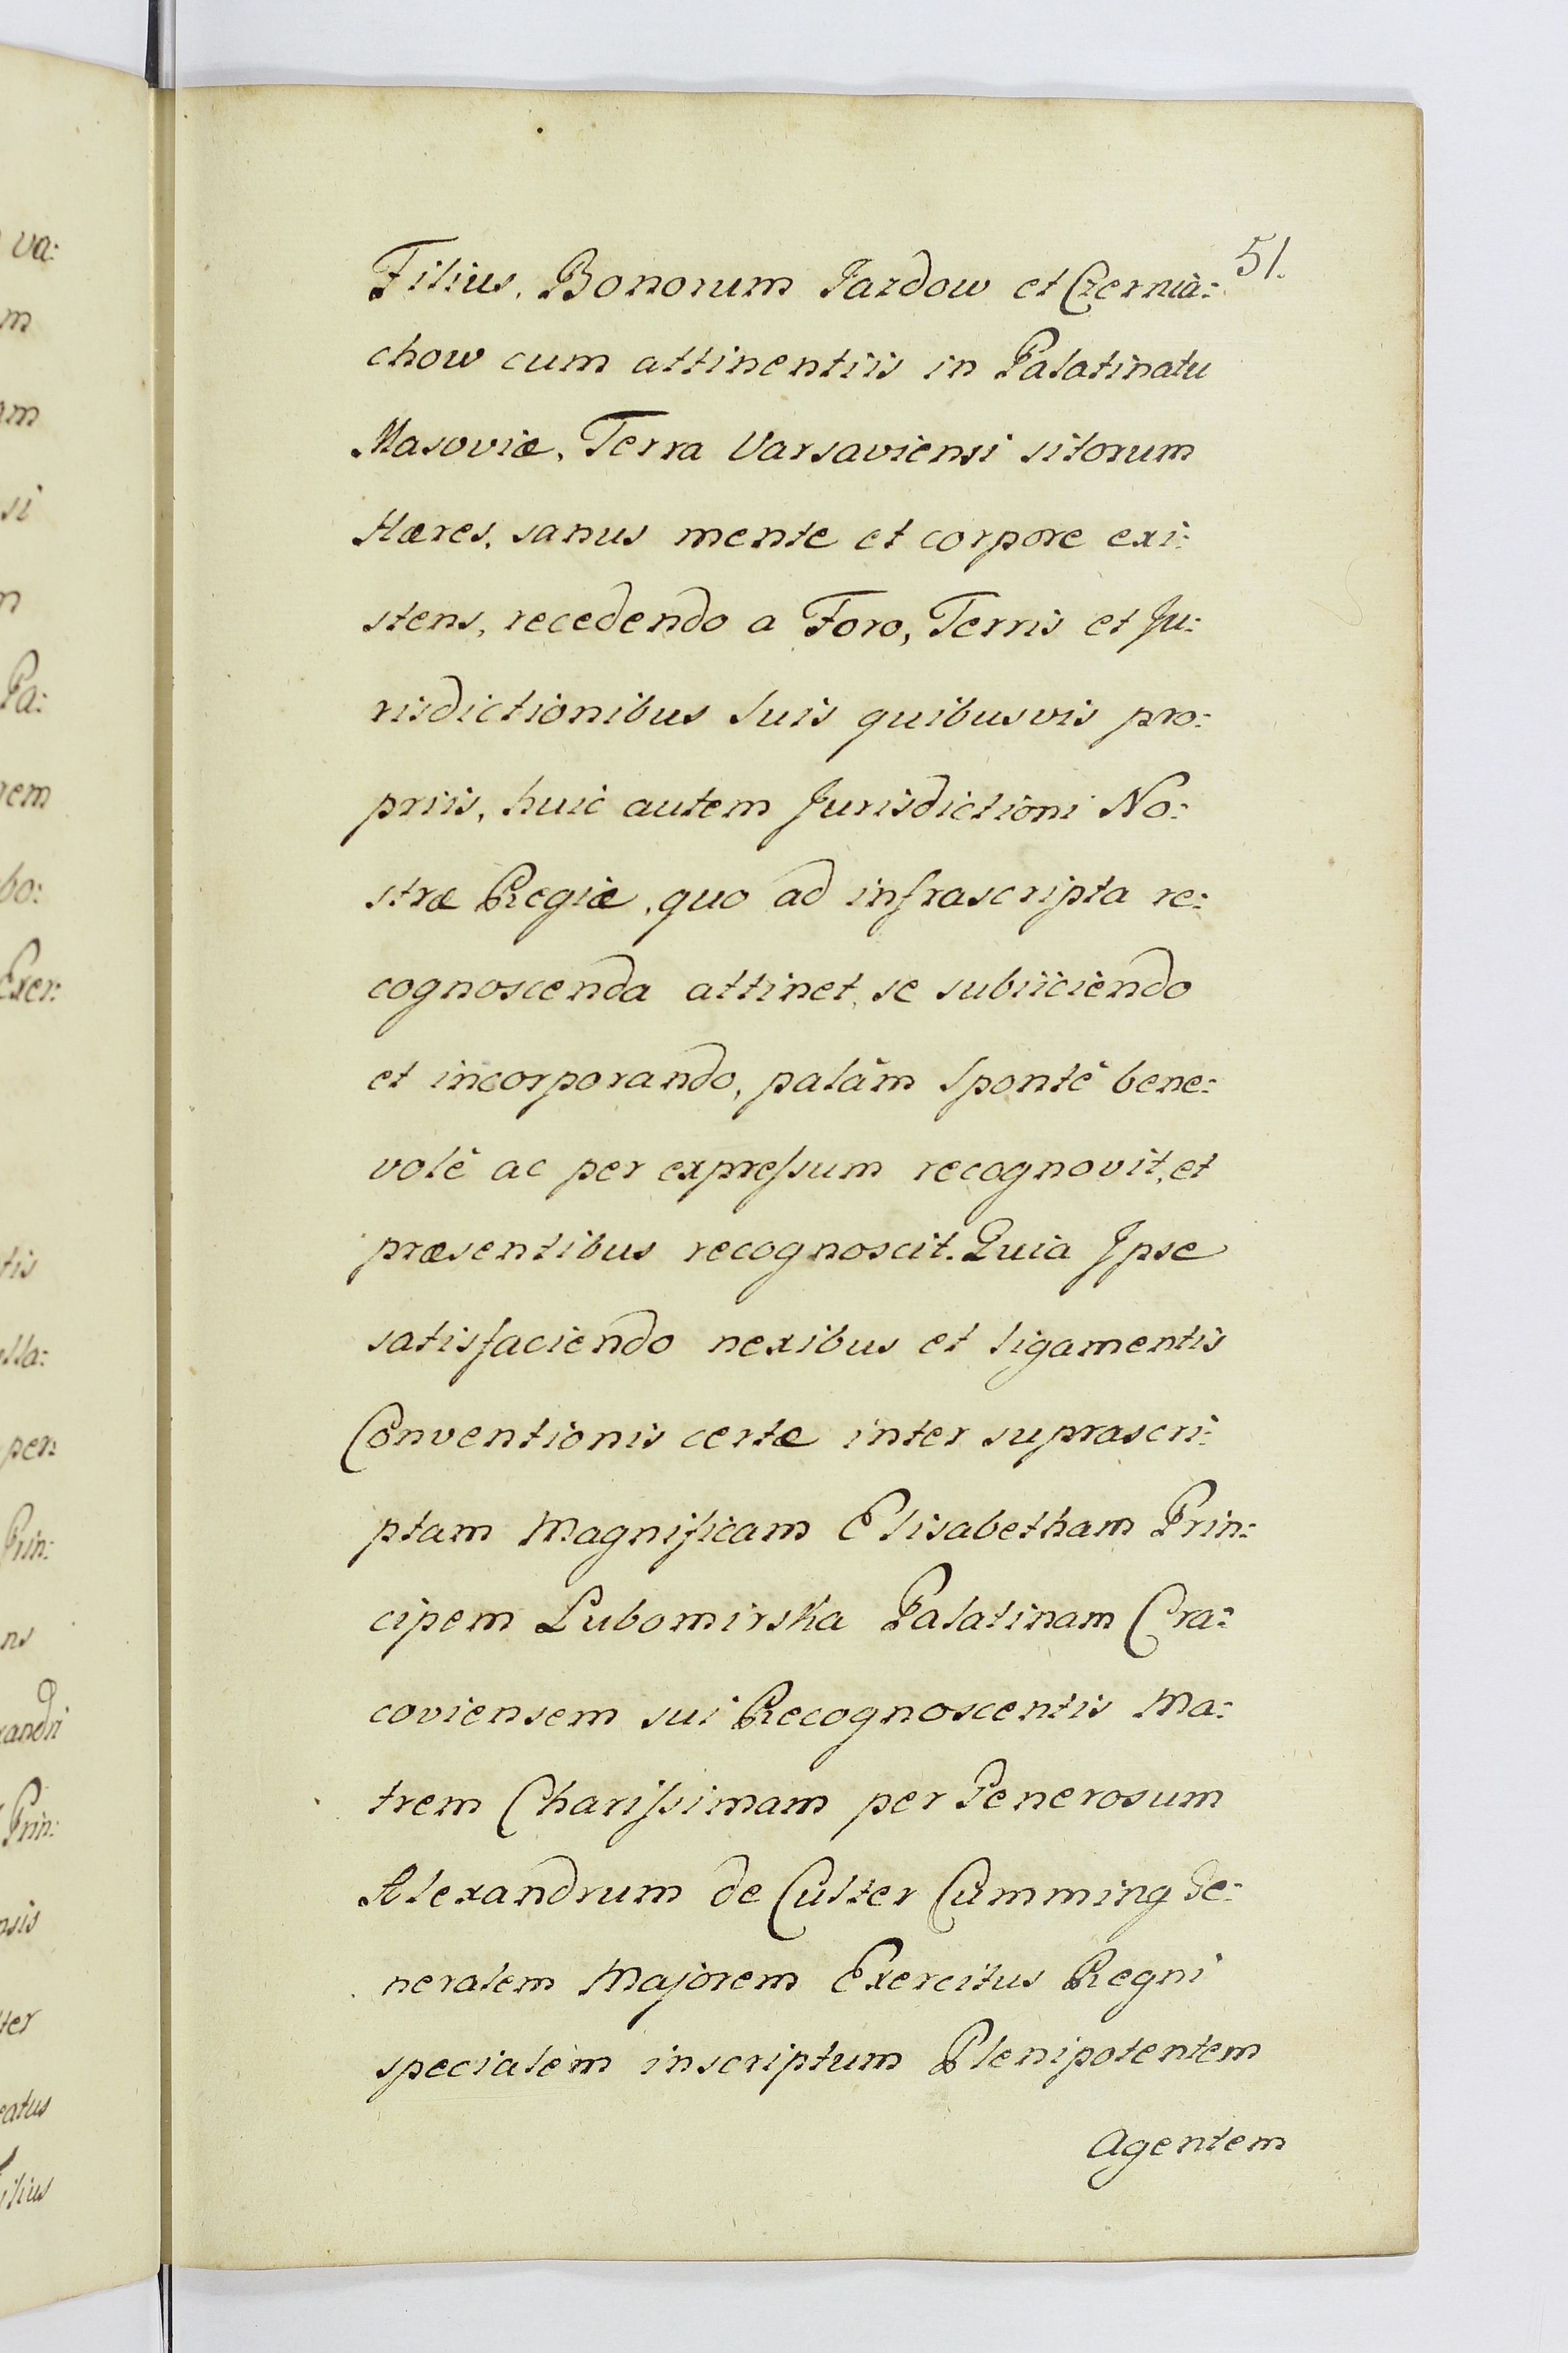 51.
Filius, Bonorum Jazdow et Czernia:
chow cum attinentiis in Palatinatu
Masoviæ, Terra Varsaviensi sitorum
Hæres, sanus mente et corpore exi:
stens, recedendo a Foro, Terris et Ju:
risdictionibus suis quibusvis pro:
priis, huic autem Jurisdictioni No:
stræ Regiæ, quo ad infrascripta re:
cognoscenda attinet, se subiiciendo
et incorporando, palàm spontè bene:
volè ac per expressum recognovit, et
præsentibus recognoscit. Quia Ipse
satisfaciendo nexibus et ligamentis
Conventionis certæ inter suprascri:
ptam Magnificam Elisabetham Prin:
cipem Lubomirska Palatinam Cra:
coviensem sui Recognoscentis Ma:
trem Charissimam per Generosum
Alexandrum de Culter Cumming Ge:
neralem Majorem Exercitus Regni
specialem inscriptum Plenipotentem
Agentem
va:
m
am
si
m
Pa:
nem
bo:
Exer:
tis
ella:
per:
Prin:
ns
xandri
Prin:
nsis
ter
eatus
Filius